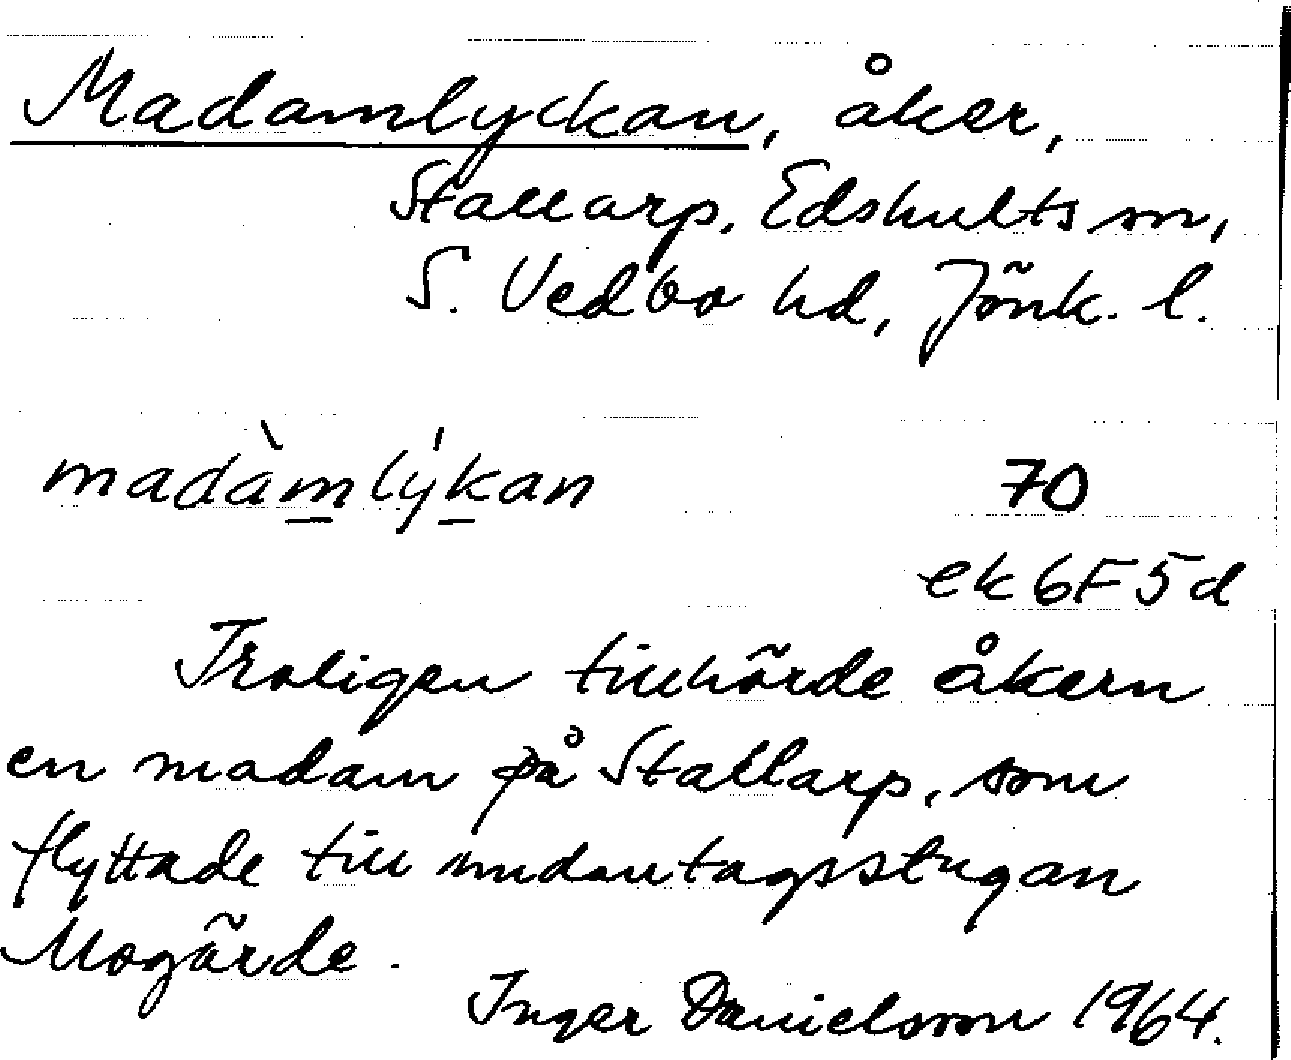 Madamlyckan, åker,
Stallarp, Edshults sn,
S. Vedbo hd, Jönk. l.
madàmlý́kan 70
ek 6F5d
Troligen tillhörde åkern
en madam på Stallarp, som
flyttade till undantagsstugan
Mogärde.
Inger Danielsson 1964.